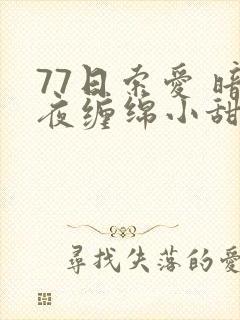 77日索爱 暗
夜缠绵小甜
尋找失落的愛